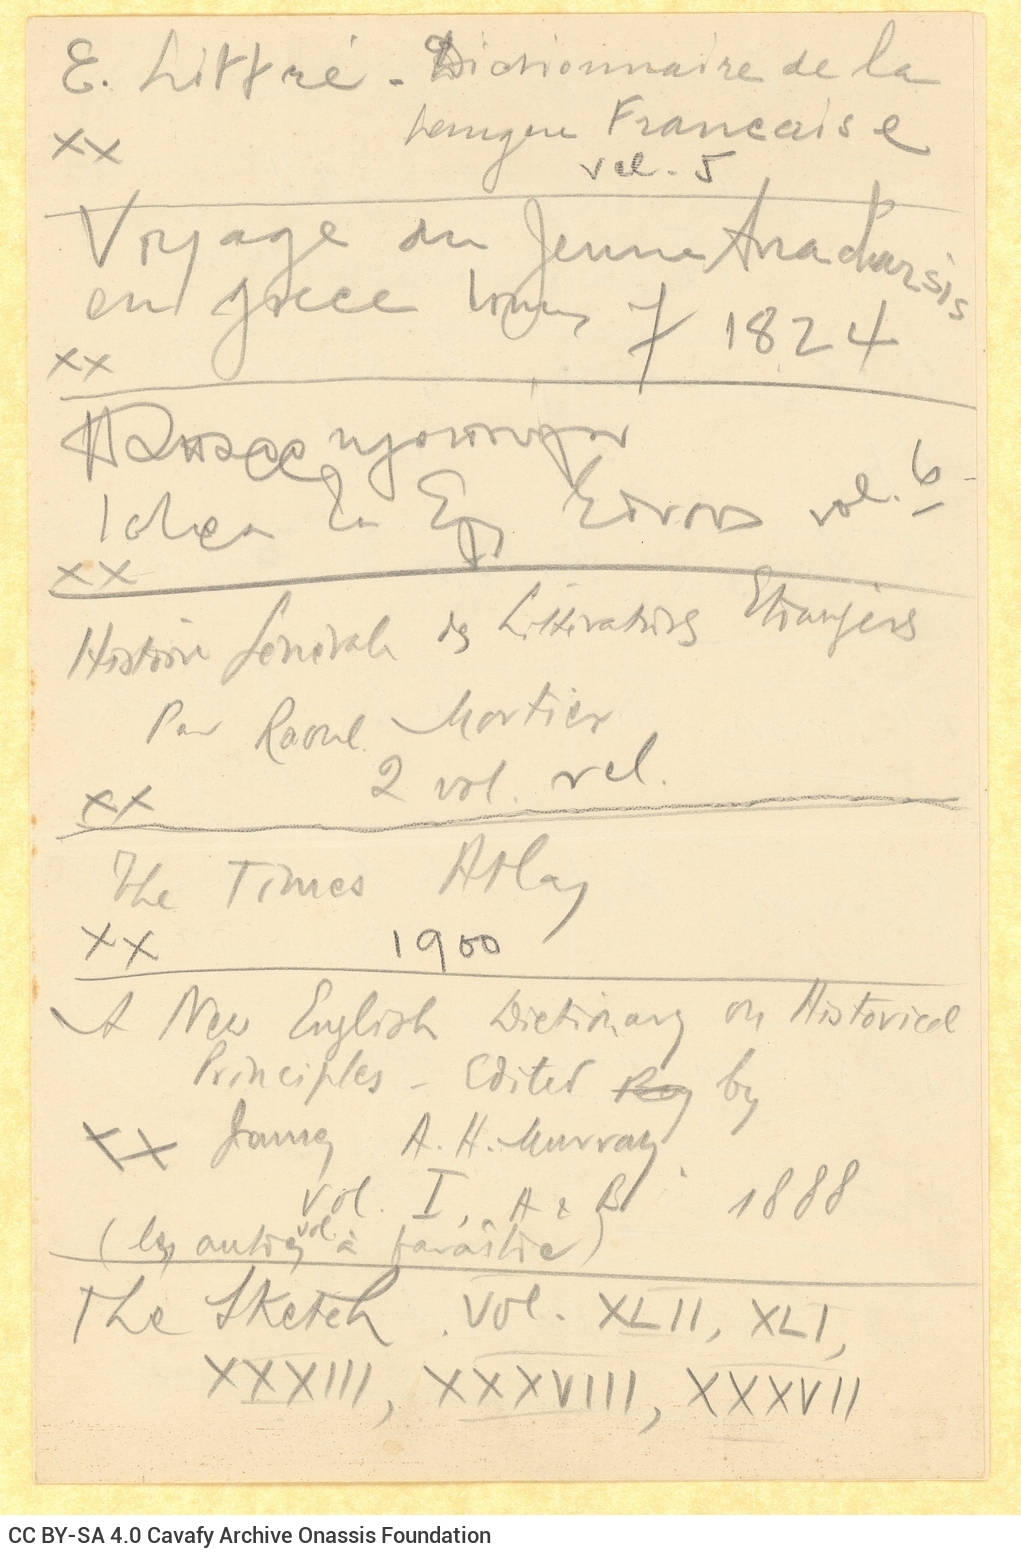 E. Littré - Dictionnaire de la
Langue Francaise
xx
vol. 5
Voyage du Jeune Anacharsis
en grece tomes 7 1824
xx
vol. 6
xx
Histoire Générale des Littératures Etrangères
Par Raoul Mortier
2 vol. rel.
xx
The Times Atlas
xx 1900
A New English Dictionary on Historical
Principles - Edited by
xx James A. H. Murray
Vol. I, A & B 1888
(les autres vol. à paraître)
The Sketch. Vol. XLII, XLI,
XXXIII, XXXVIII, XXXVII
CC BY-SA 4.0 Cavafy Archive Onassis Foundation